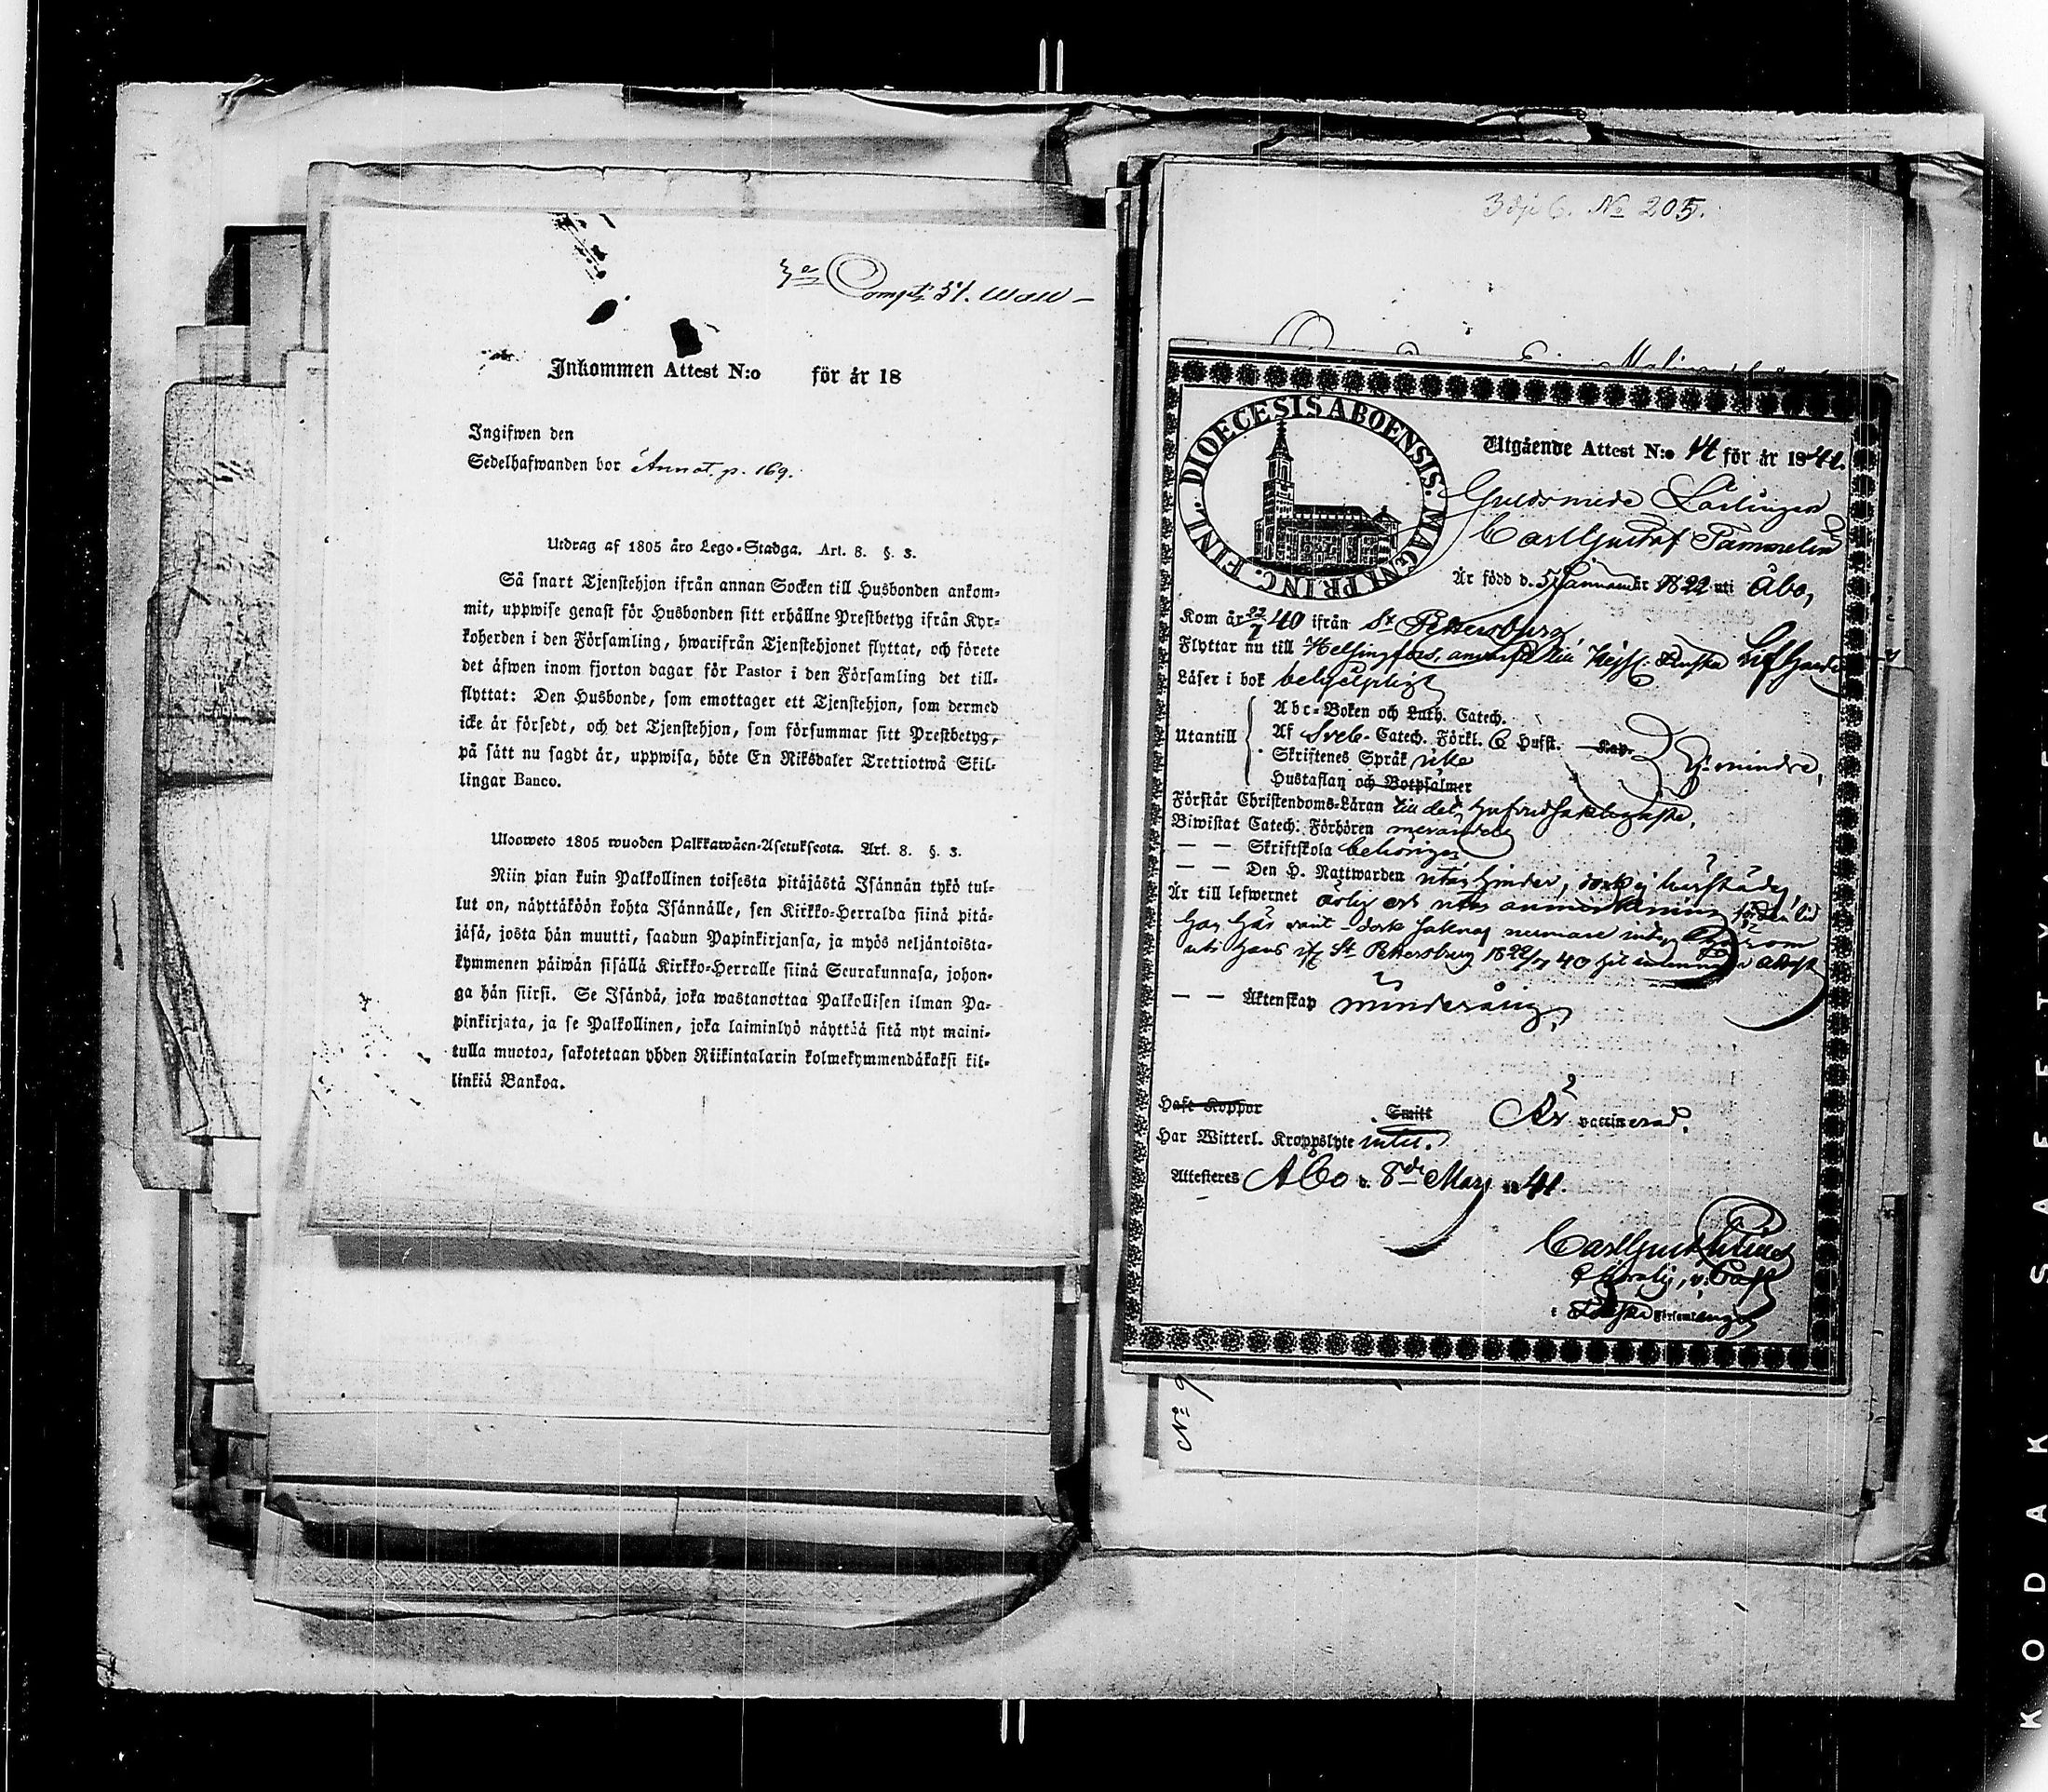 Compt: 51.
Inkommen Attest N:o för år 18
Ingifwen den
Sedelhafwanden bor Annot. p. 169.
Utdrag af 1805 års Lego-Stadga. Art. 8. §. 3.
Så snart Tjenstehjon ifrån annan Socken till Husbonden ankom-
mit, uppwise genast för Husbonden sitt erhållne Prestbetyg ifrån Kyr-
koherden i den Församling, hwarifrån Tjenstehjonet flyttat, och förete
det äfwen inom fjorton dagar för Pastor i den Församling det till-
flyttat: Den Husbonde, som emottager ett Tjenstehjon, som dermed
icke är försedt, och det Tjenstehjon, som försummar sitt Prestbetyg,
på sätt nu sagdt är, uppwisa, böte En Riksdaler Trettiotwå Skil-
lingar Banco.
Ulosweto 1805 wuoden Palkkawäen-Asetuksesta. Art. 8. §. 3.
Niin pian kuin Palkollinen toisesta pitäjästä Isännän tykö tul-
lut on, näyttäköön kohta Isännälle, sen Kirkko-Herralda siinä pitä-
jäsä, josta hän muutti, saadun Papinkirjansa, ja myös neljäntoista-
kymmenen päiwän sisällä Kirkko-Herralle siinä Seurakunnasa, johon-
ga hän siirsi. Se Isändä, joka wastanottaa Palkollisen ilman Pa-
pinkirjata, ja se Palkollinen, joka laiminlyö näyttää sitä nyt maini-
tulla muotoa, sakotetaan yhden Riikintalarin kolmekymmendäkaksi kil-
linkiä Bankoa.
3dje C. No 205.
DIOECESIS ABOENSIS. MAGNI PRINC. FINL.
Utgående Attest N:o 14 för år 1841.
Guldsmeds Lärlingen
Carl Gustaf Tammelin
Är född d. 5 Januari år 1822 uti Åbo,
Kom år 22/7 40 ifrån St Petersburg,
Flyttar nu till Helsingfors,
Läser i bok behjelpligt
Utantill
Abc-Boken och Luth. Catech.
Af Sveb. Catech. Förkl. 6 Hufst. Kap.
Skriftenes Språk icke
Hustaflan och Botpsalmer
d:o mindre,
Förstår Christendoms-Läran till det
Biwistat Catech. Förhören
— — Skriftskola behörigen
— — Den H. Nattwarden utan hinder,
Är till lefwernet ärlig och utan anmärkning för den tid
han här warit – dock
uti hans if. St Petersburg 18 22/7 40 attest
— — Äktenskap minderårig,
Haft Koppor Smitt Är vaccinerad.
Har Witterl. Kroppslyte intet.
Attesteras Åbo d. 8de Mars 1841.
Carl Gust.
i Församlingen
No 9
KODAK SAFETY